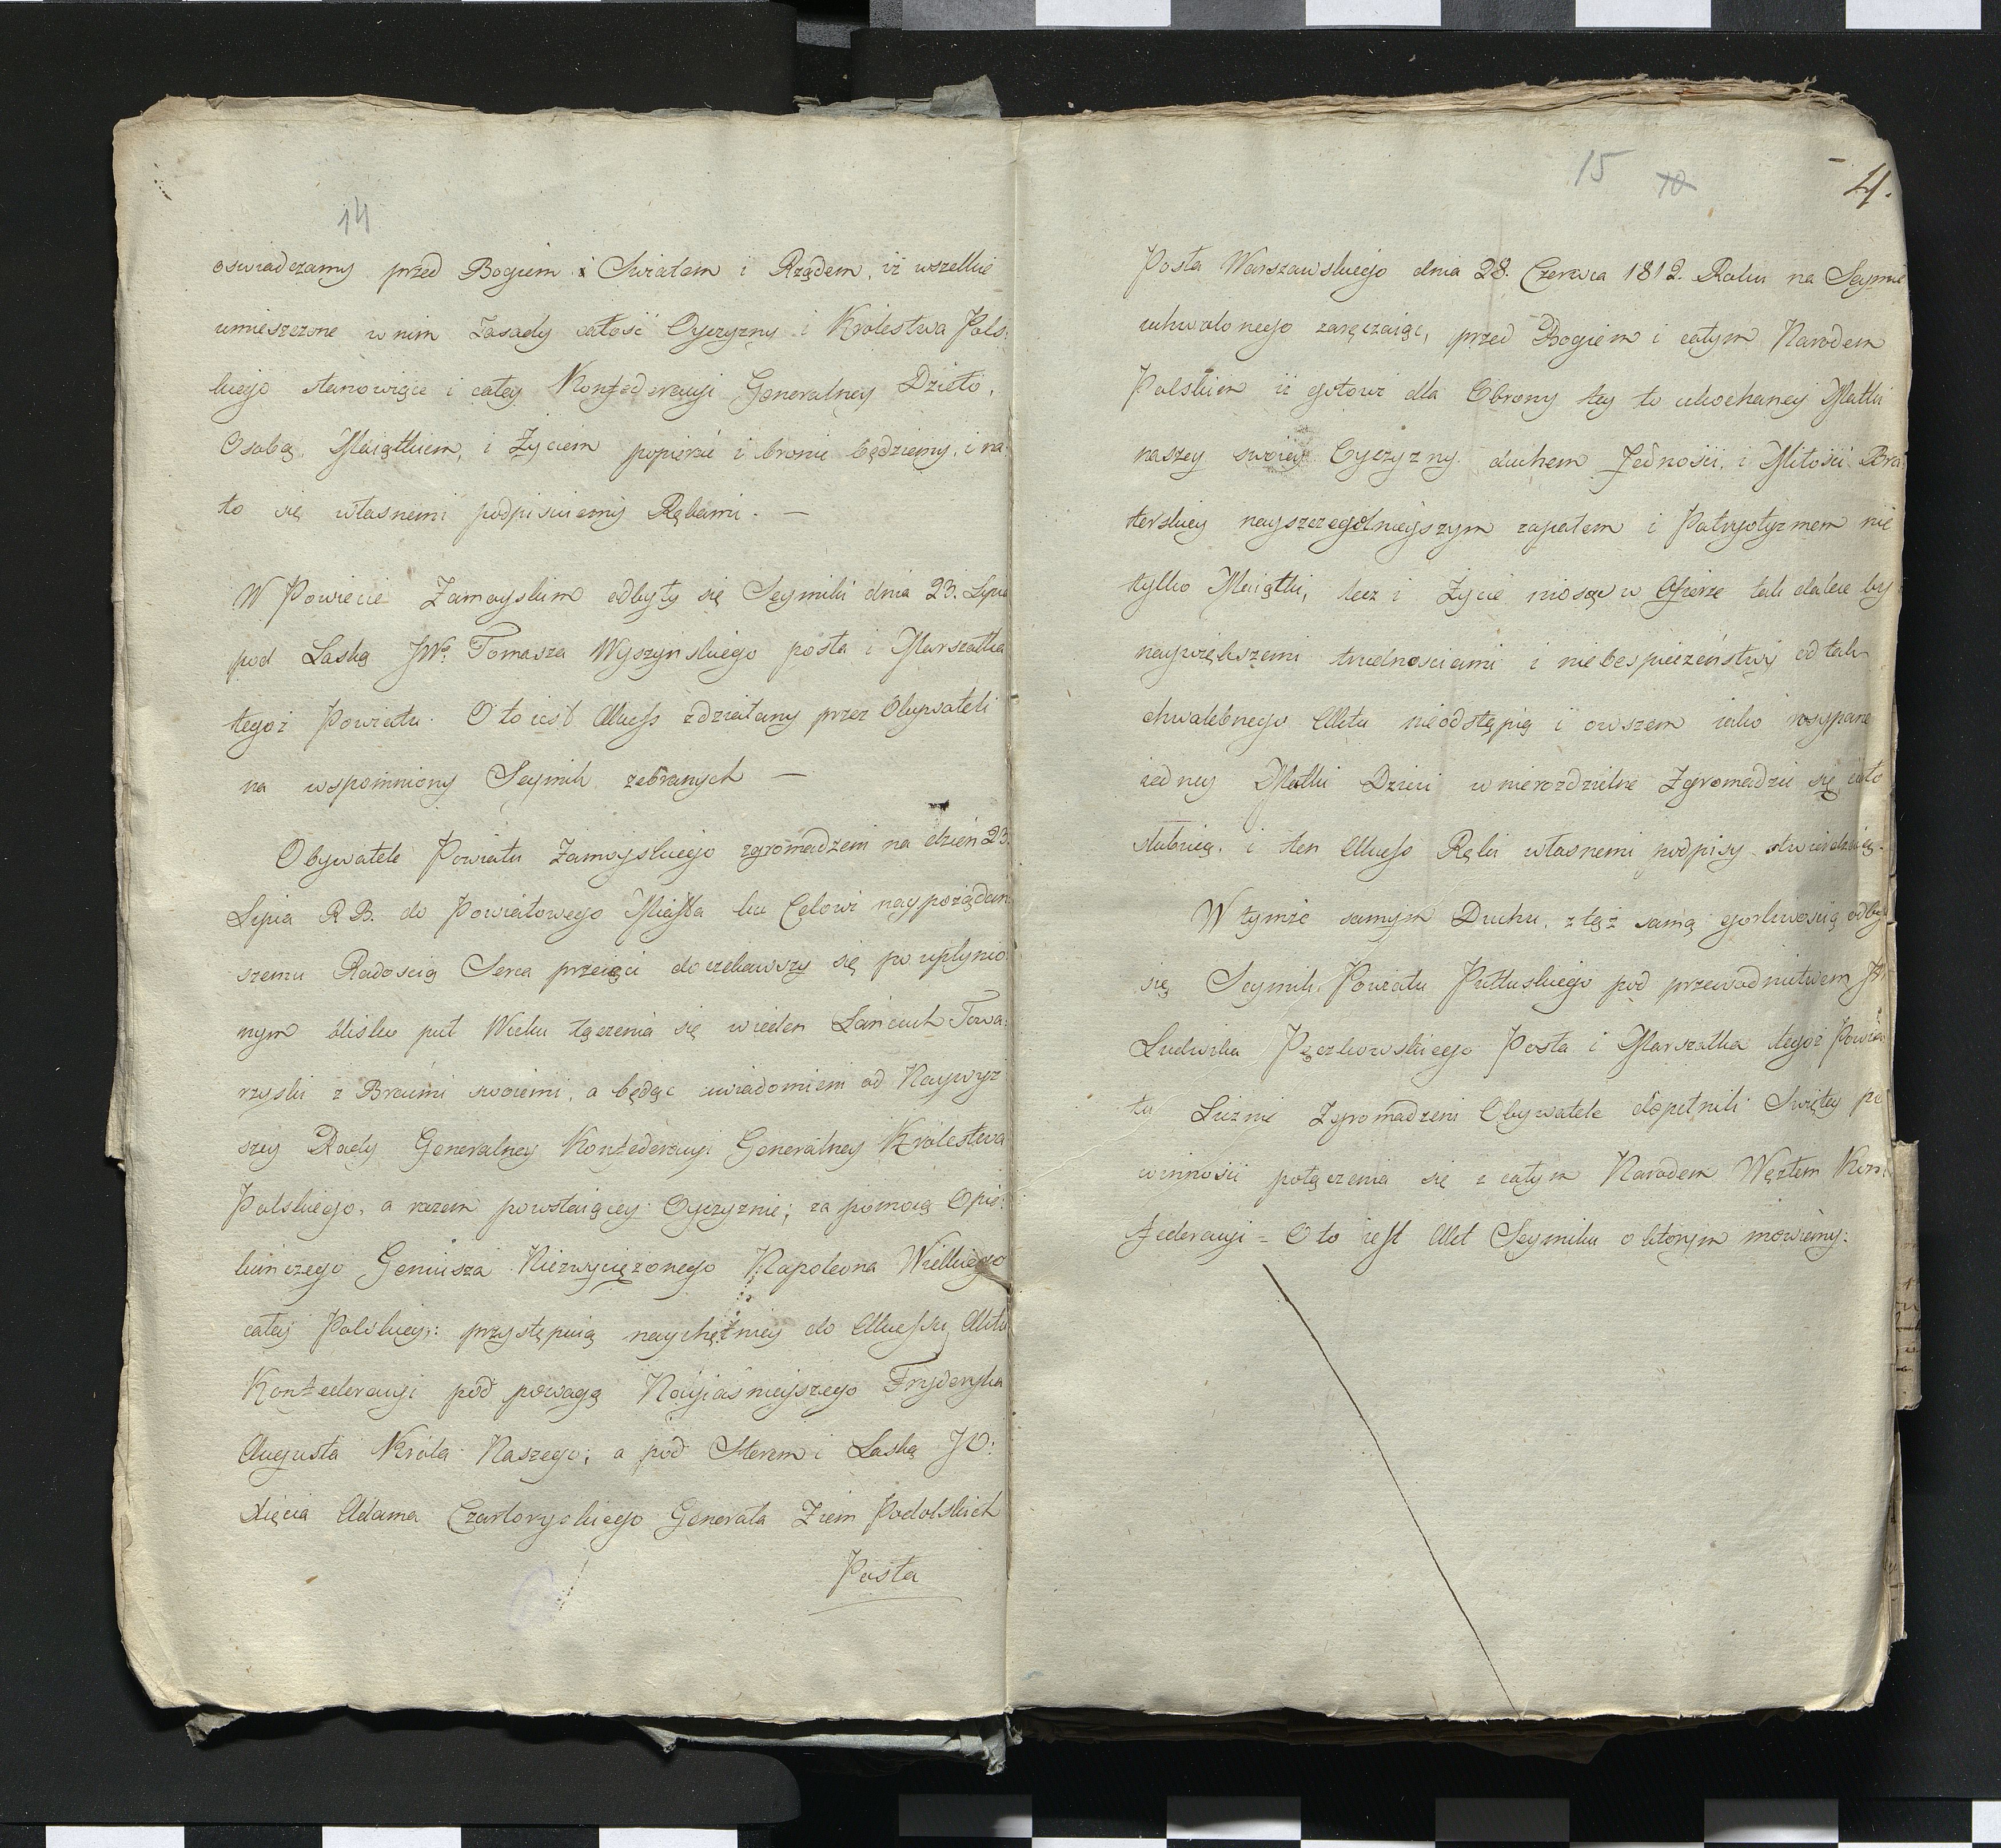 14
oswiadczamy przed Bogiem i Swiatem i Rządem, iż wszelkie
umieszczone w nim Zasady całość Oyczyzny i Krolestwa Pols:
kiego stanowiące i całey Konfederacyi Generalney Dzieło,
Osobą, Maiątkiem, i Życiem popierać i bronić będziemy, i na
to się własnemi podpisuiemy Rękami. —
W Powiecie Zamoyskim odbyły się Seymiki dnia 23. Lipca
pod Laską JWo Tomasza Wyszynskiego posła i Marszałka
tegoż Powiatu. Oto iest Akcess zdziałany przez Obywateli
na wspomniony Seymik zebranych —
Obywatele Powiatu Zamoyskiego zgromadzeni na dzień 23.
Lipca R B. do Powiatowego Miasta ku Celowi naypożądań
szemu Radoscią Serca przeięci doczekawszy się po upłynio
nym blisko pół Wieku łączenia się wieden Łańcuch Towa:
rzyski z Braćmi swoiemi, a będąc uwiadomieni od Naywyż
szey Rady Generalney Konfederacyi Generalney Królestwa
Polskiego, a razem powstaiącey Oyczyznie; za pomocą Opie:
kuńczego Geniusza Niezwyciężonego Napoleona Wielkiego
całey Polskiey: przystępuią naychętniey do Akcessu Aktu
Konfederacyi pod powagą Nayiasnieyszego Fryderyka
Augusta Króla Naszego; a pod Sterem i Laską JO:
Xięcia Adama Czartoryskiego Generała Ziem Podolskich
Posła
15 10 4.
Posła Warszawskiego dnia 28. Czerwca 1812. Roku na Seymie
uchwalonego zaręczaiąc, przed Bogiem i całym Narodem
Polskim iż gotowi dla Obrony tey to ukochaney Matki
naszey swoiey Oyczyzny duchem Jedności, i Miłości Bra
terskiey nayszczególnieyszym zapałem i Patryotyzmem nie
tylko Maiątki, lecz i Życie niosąc w Ofierze tak dalece by
naywiększemi trudnosciami i niebespieczeństwy od tak
chwalebnego Aktu nieodstąpią i owszem iako rosypane
iedney Matki Dzieci w nierozdzielne Zgromadzić się ciało
slubuią, i ten Akcess Ręki własnemi podpisy stwierdzaią.
W tymże samym Duchu, z tąż samą gorliwoscią odbył
się Seymik Powiatu Pułtuskiego pod przewodnictwem JW
Ludwika Pęczkowskiego Posła i Marszałka tegoż Powia
tu Licznie Zgromadzeni Obywatele dopełnili Swiętey po
winności połączenia się z całym Narodem Węzłem Kon:
federacyi = Oto iest Akt Seymiku o którym mówiemy: